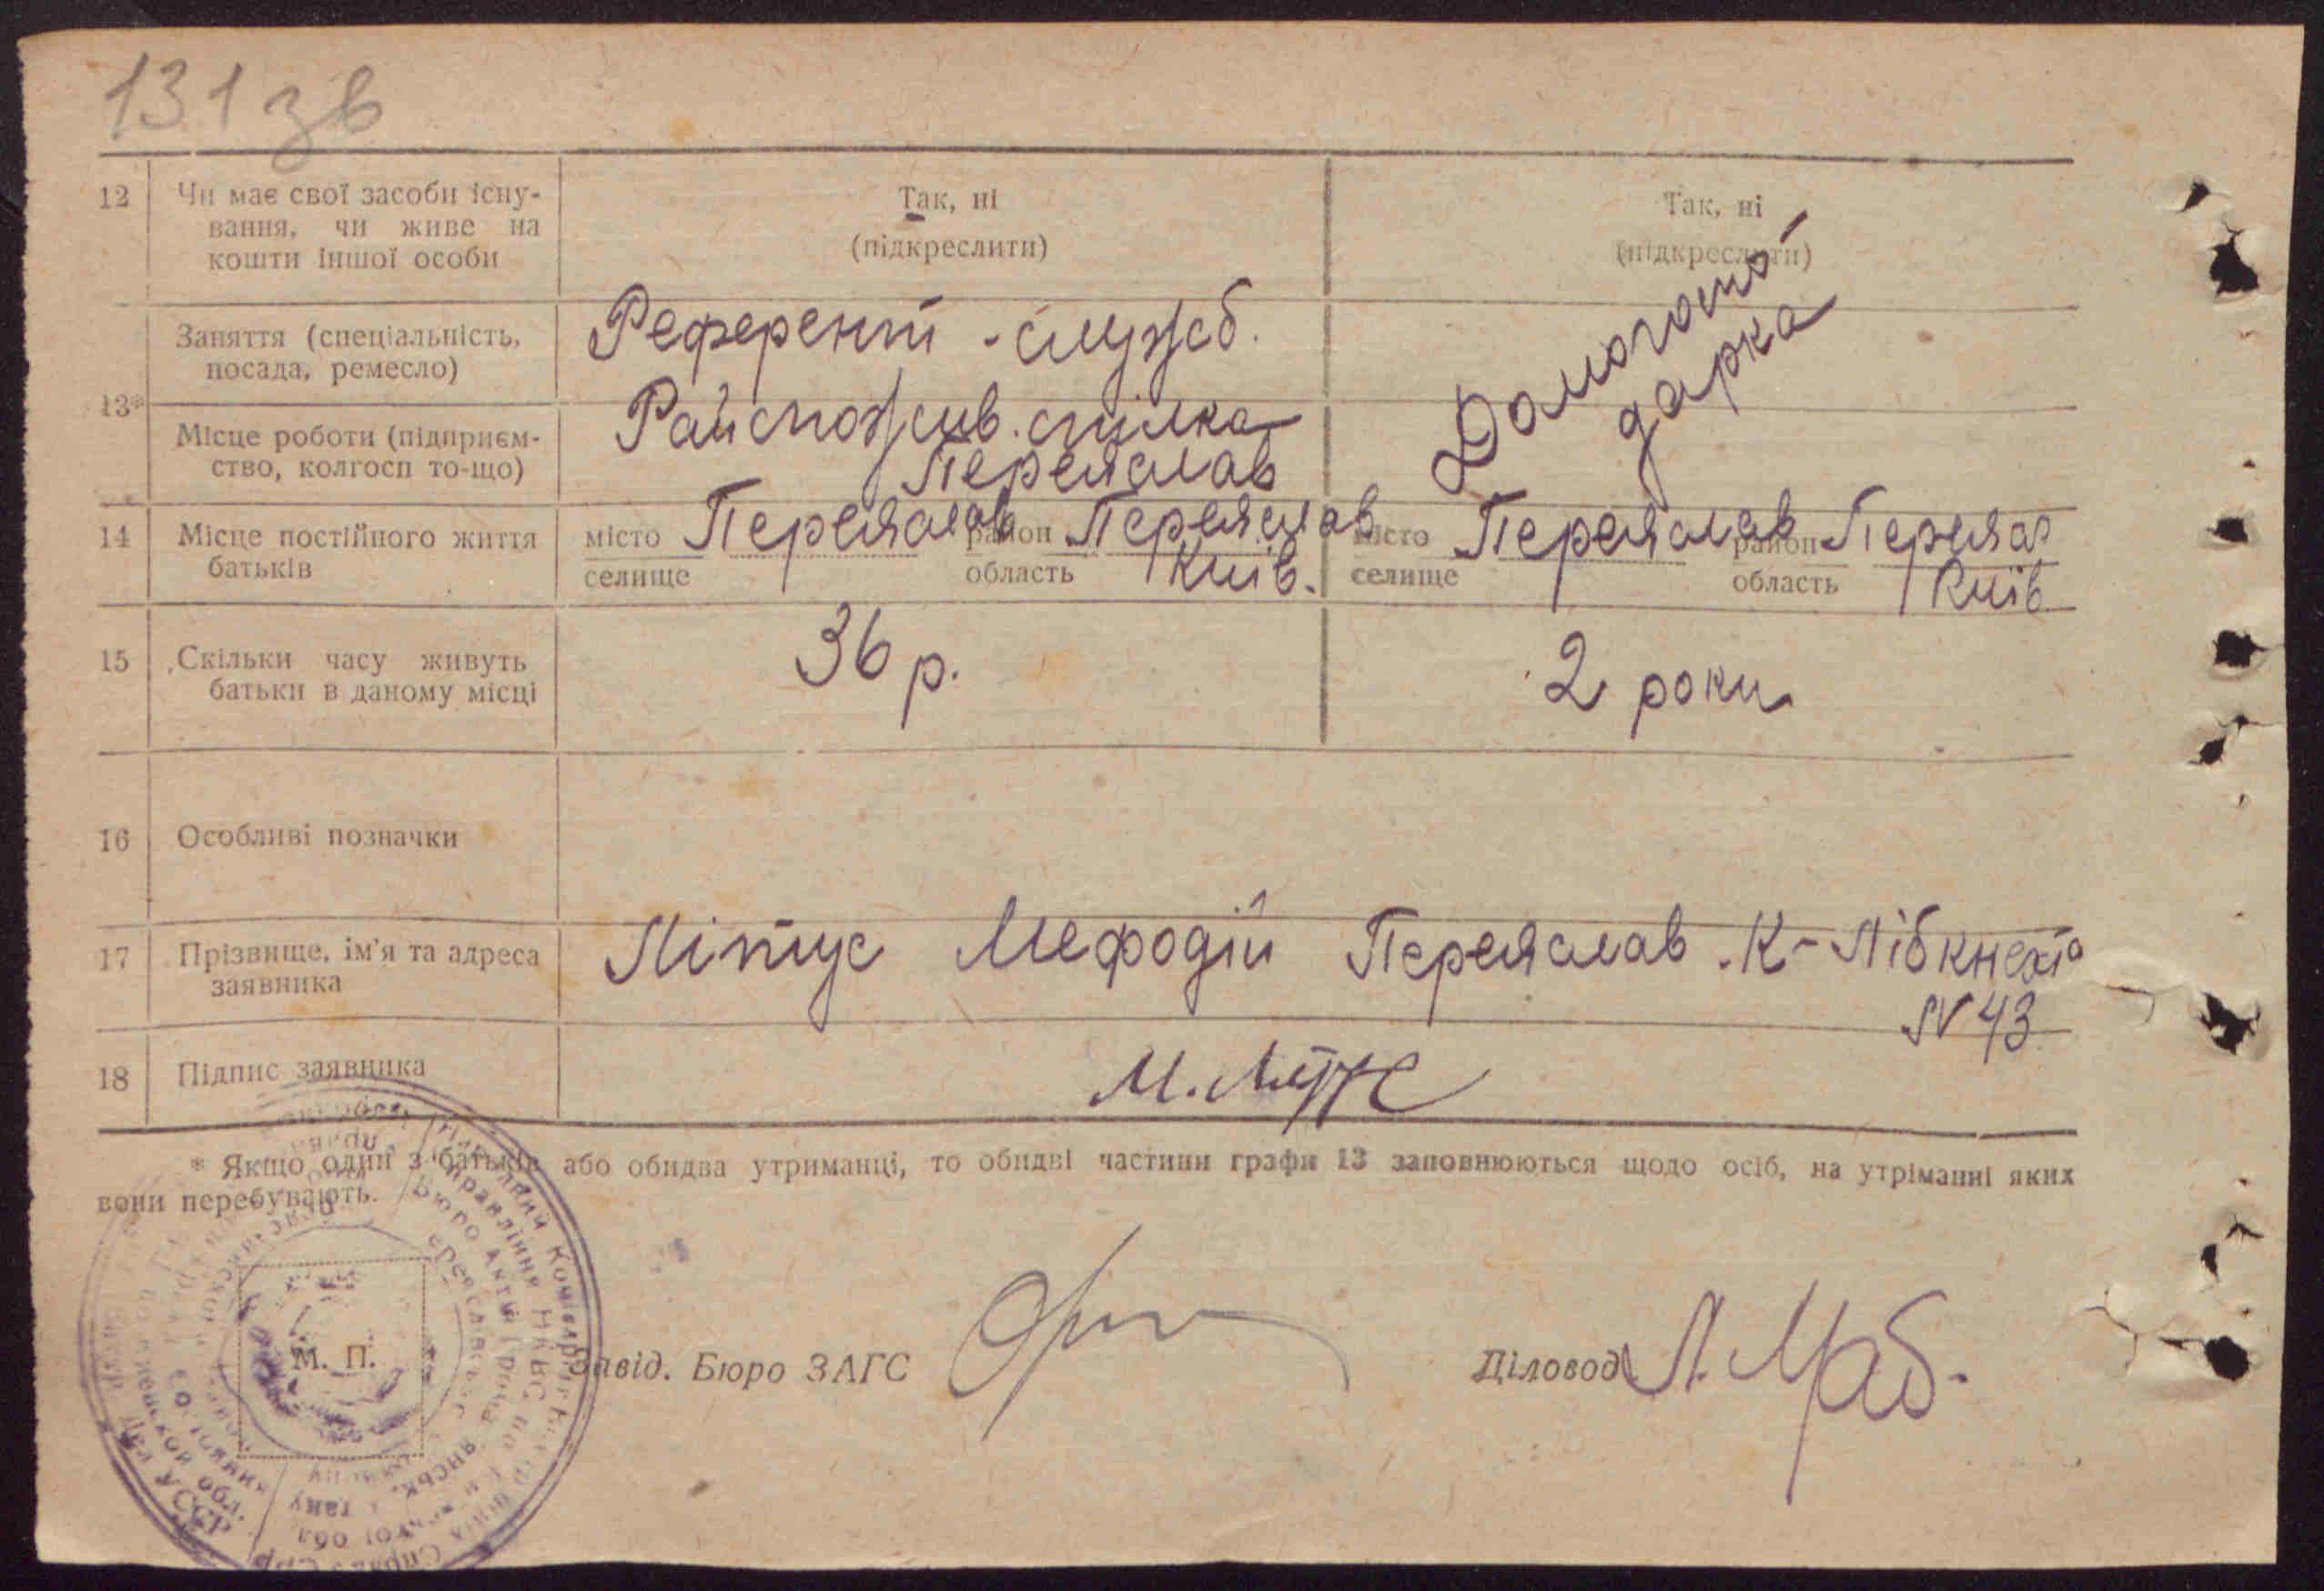 131 зв
12 Чи має свої засоби існу-
вання, чи живе на
кошти іншої особи
Так, ні
(підкреслити)
Так, ні
(підкреслити)
13*
Заняття (спеціальність,
посада, ремесло)
Референт - служб.
Домогоспо
дарка
Місце роботи (підприєм-
ство, колгосп то-що)
Райспожив. спілка
Переяслав
14 Місце постійного життя
батьків
місто Переяслав район Переяслав
селище область Київ.
місто Переяслав район Переяс
селище область Київ
15 Скільки часу живуть
батьки в даному місці
36 р.
2 роки
16 Особливі позначки
17 Прізвище, ім'я та адреса
заявника
Літус Мефодій Переяслав .К-Лібкнехта
N 43
18 Підпис заявника
М. Літус
* Якщо один з батьків або обидва утриманці, то обидві частини графи 13 заповнюються щодо осіб, на утріманні яких
вони перебувають.
М. П.
Завід. Бюро ЗАГС
Діловод